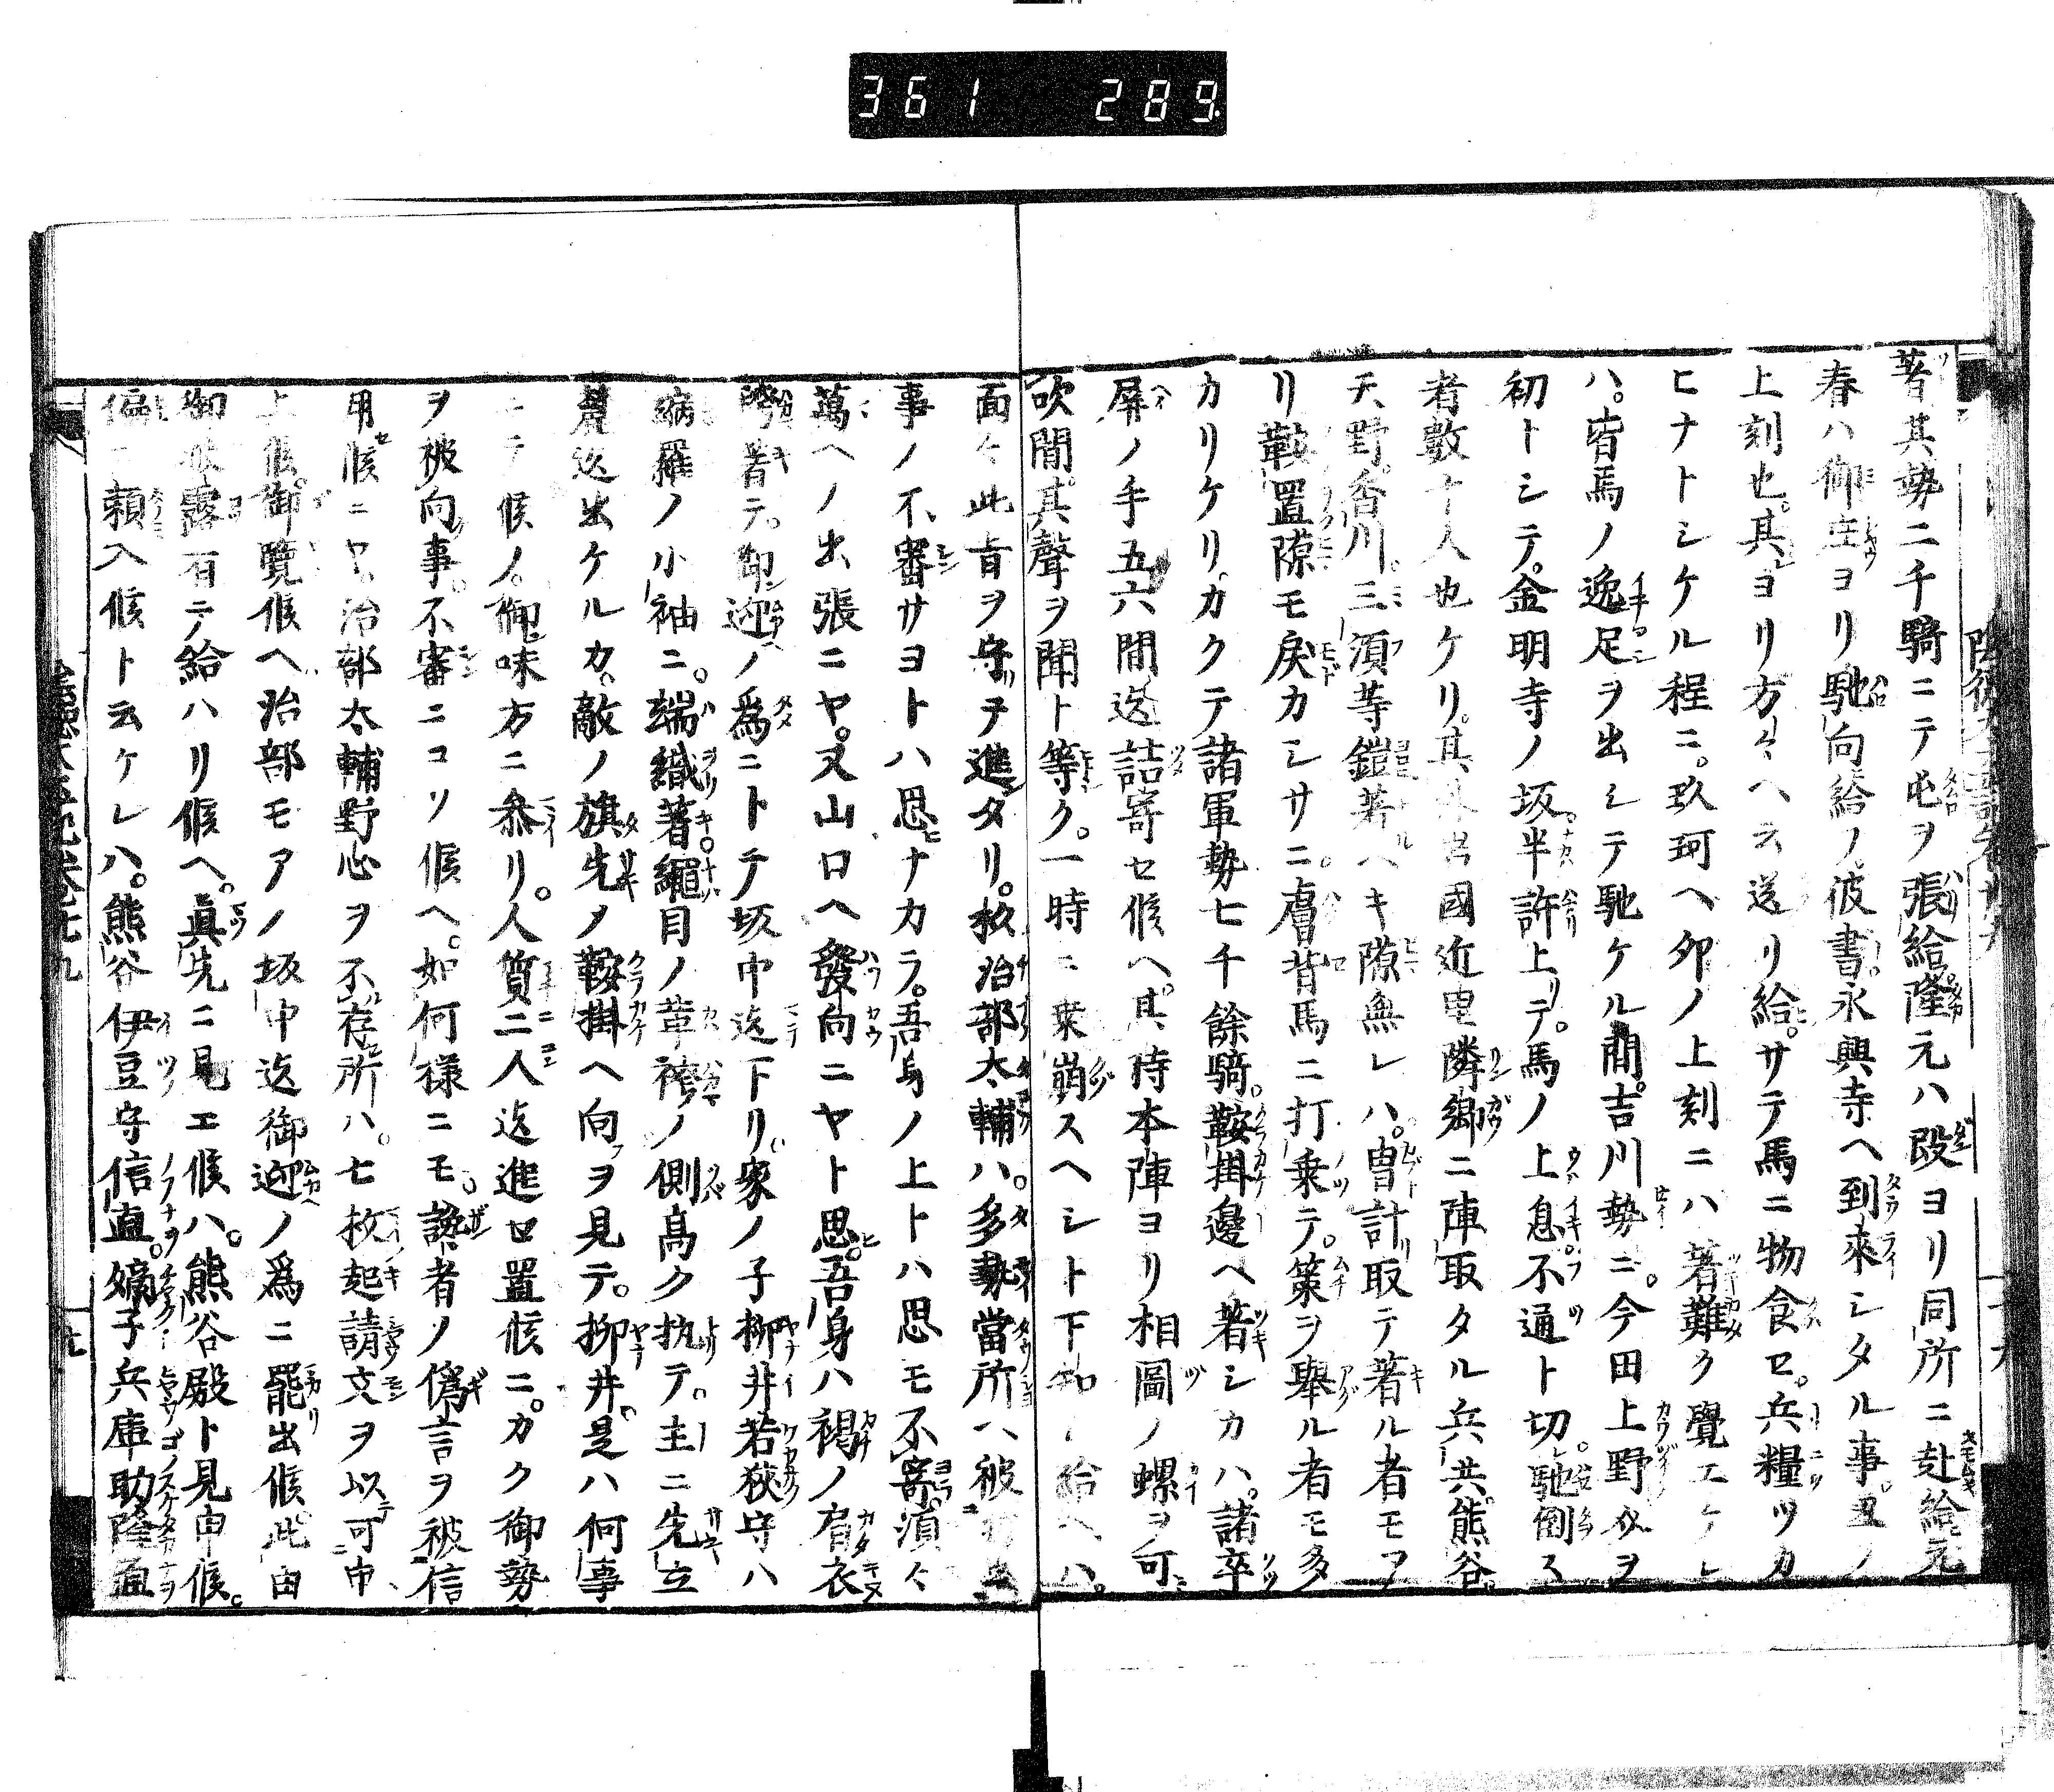 361 289
著其勢二千騎ニテ屯ヲ張給隆元ハ段ヨリ同所ニ赴給元
春ハ御庄ヨリ馳向給ノ彼書永興寺ヘ到來シタル事丑ノ
上刻也其ヨリ方々ヘ云送リ給サテ馬ニ物食セ兵糧ツカ
ヒナトシケル程ニ玖珂ヘ卯ノ上刻ニハ著難ク覺エケレ
ハ皆馬ノ逸足ヲ出シテ馳ケル間吉川勢ニ今田上野ヲ
初トシテ金明寺ノ坂半許上リテ馬ノ上息不通ト切馳倒ス
者數十人也ケリ其外出國近里隣郷ニ陣取タル兵共熊谷
天野香川三須等鎧著ヘキ隙無レハ冑計取テ著ル者モア
リ鞍置隙モ戻カシサニ膚背馬ニ打乗テ策ヲ舉ル者モ多
カリケリカクテ諸軍勢七千餘騎鞍掛邊ヘ著シカハ諸卒
屏ノ手五六間迄詰寄セ候ヘ其待本陣ヨリ相圖ノ螺ヲ可
吹間其聲ヲ聞ト等ク一時ニ乗崩スヘシト下知シ給ヘハ
面々此旨ヲ守テ進タリ杉治部太輔ハ多勢當所ヘ被
事ノ不審サヨトハ思ナカラ吾身ノ上トハ思モ不寄須々
萬ヘノ出張ニヤ又山口ヘ發向ニヤト思吾身ハ褐ノ肩衣
袴著テ御迎ノ爲ニトテ坂中迄下リ家ノ子柳井若狹守ハ
縞羅ノ小袖ニ端織著繩目ノ革袴ノ側高ク執テ主ニ先立
麓迄出ケルカ敵ノ旗先ノ鞍掛ヘ向ヲ見テ柳井是ハ何事
ニテ候ノ御味方ニ參リ人質二人迄進セ置候ニカク御勢
ヲ被向事不審ニコソ候ヘ如何樣ニモ讒者ノ僞言ヲ被信
用候ニヤ治部太輔野心ヲ不存所ハ七枚起請文ヲ以可申
上候御覽候ヘ治部モアノ坂中迄御迎ノ爲ニ罷出候此由
御披露有テ給ハリ候ヘ眞先ニ見エ候ハ熊谷殿ト見申候
偏ニ頼入候ト云ケレハ熊谷伊豆守信直嫡子兵庫助隆直